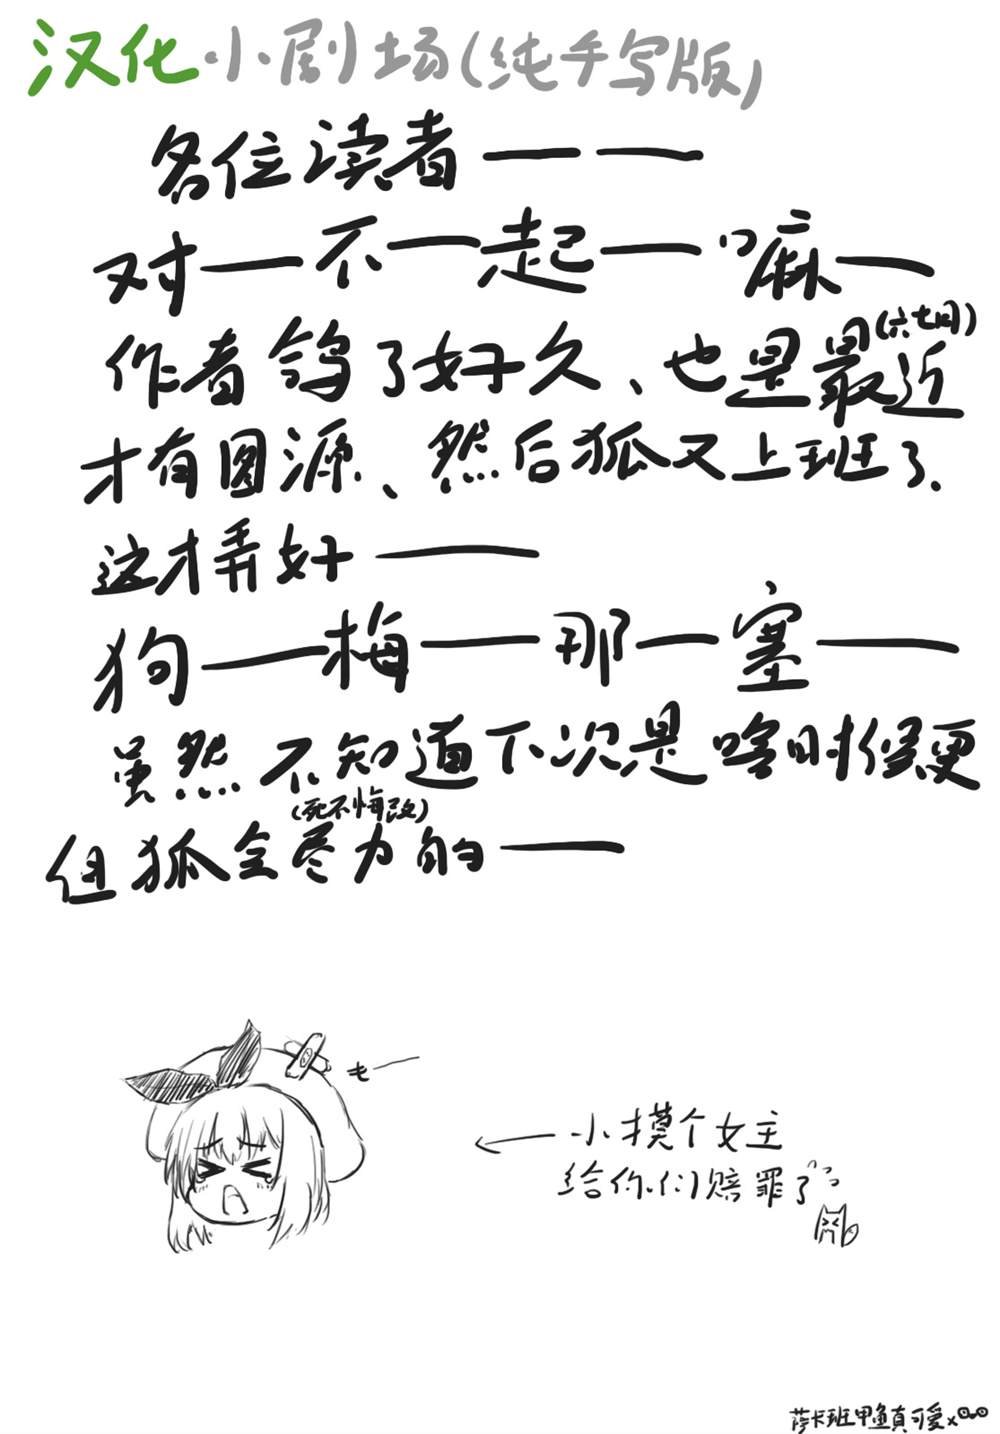 汉化小剧场(纯手写版)
各位读者——
对—不—起—嘛—
作者鸽了好久、也是最近(六七月)
才有图源、然后狐又上班了.
这才弄好——
狗—梅—那—塞—
虽然不知道下次是啥时候更
(死不悔改)
但狐会尽力的——
←小摸个女主
给你们赔罪了
萨卡班甲鱼真可爱x